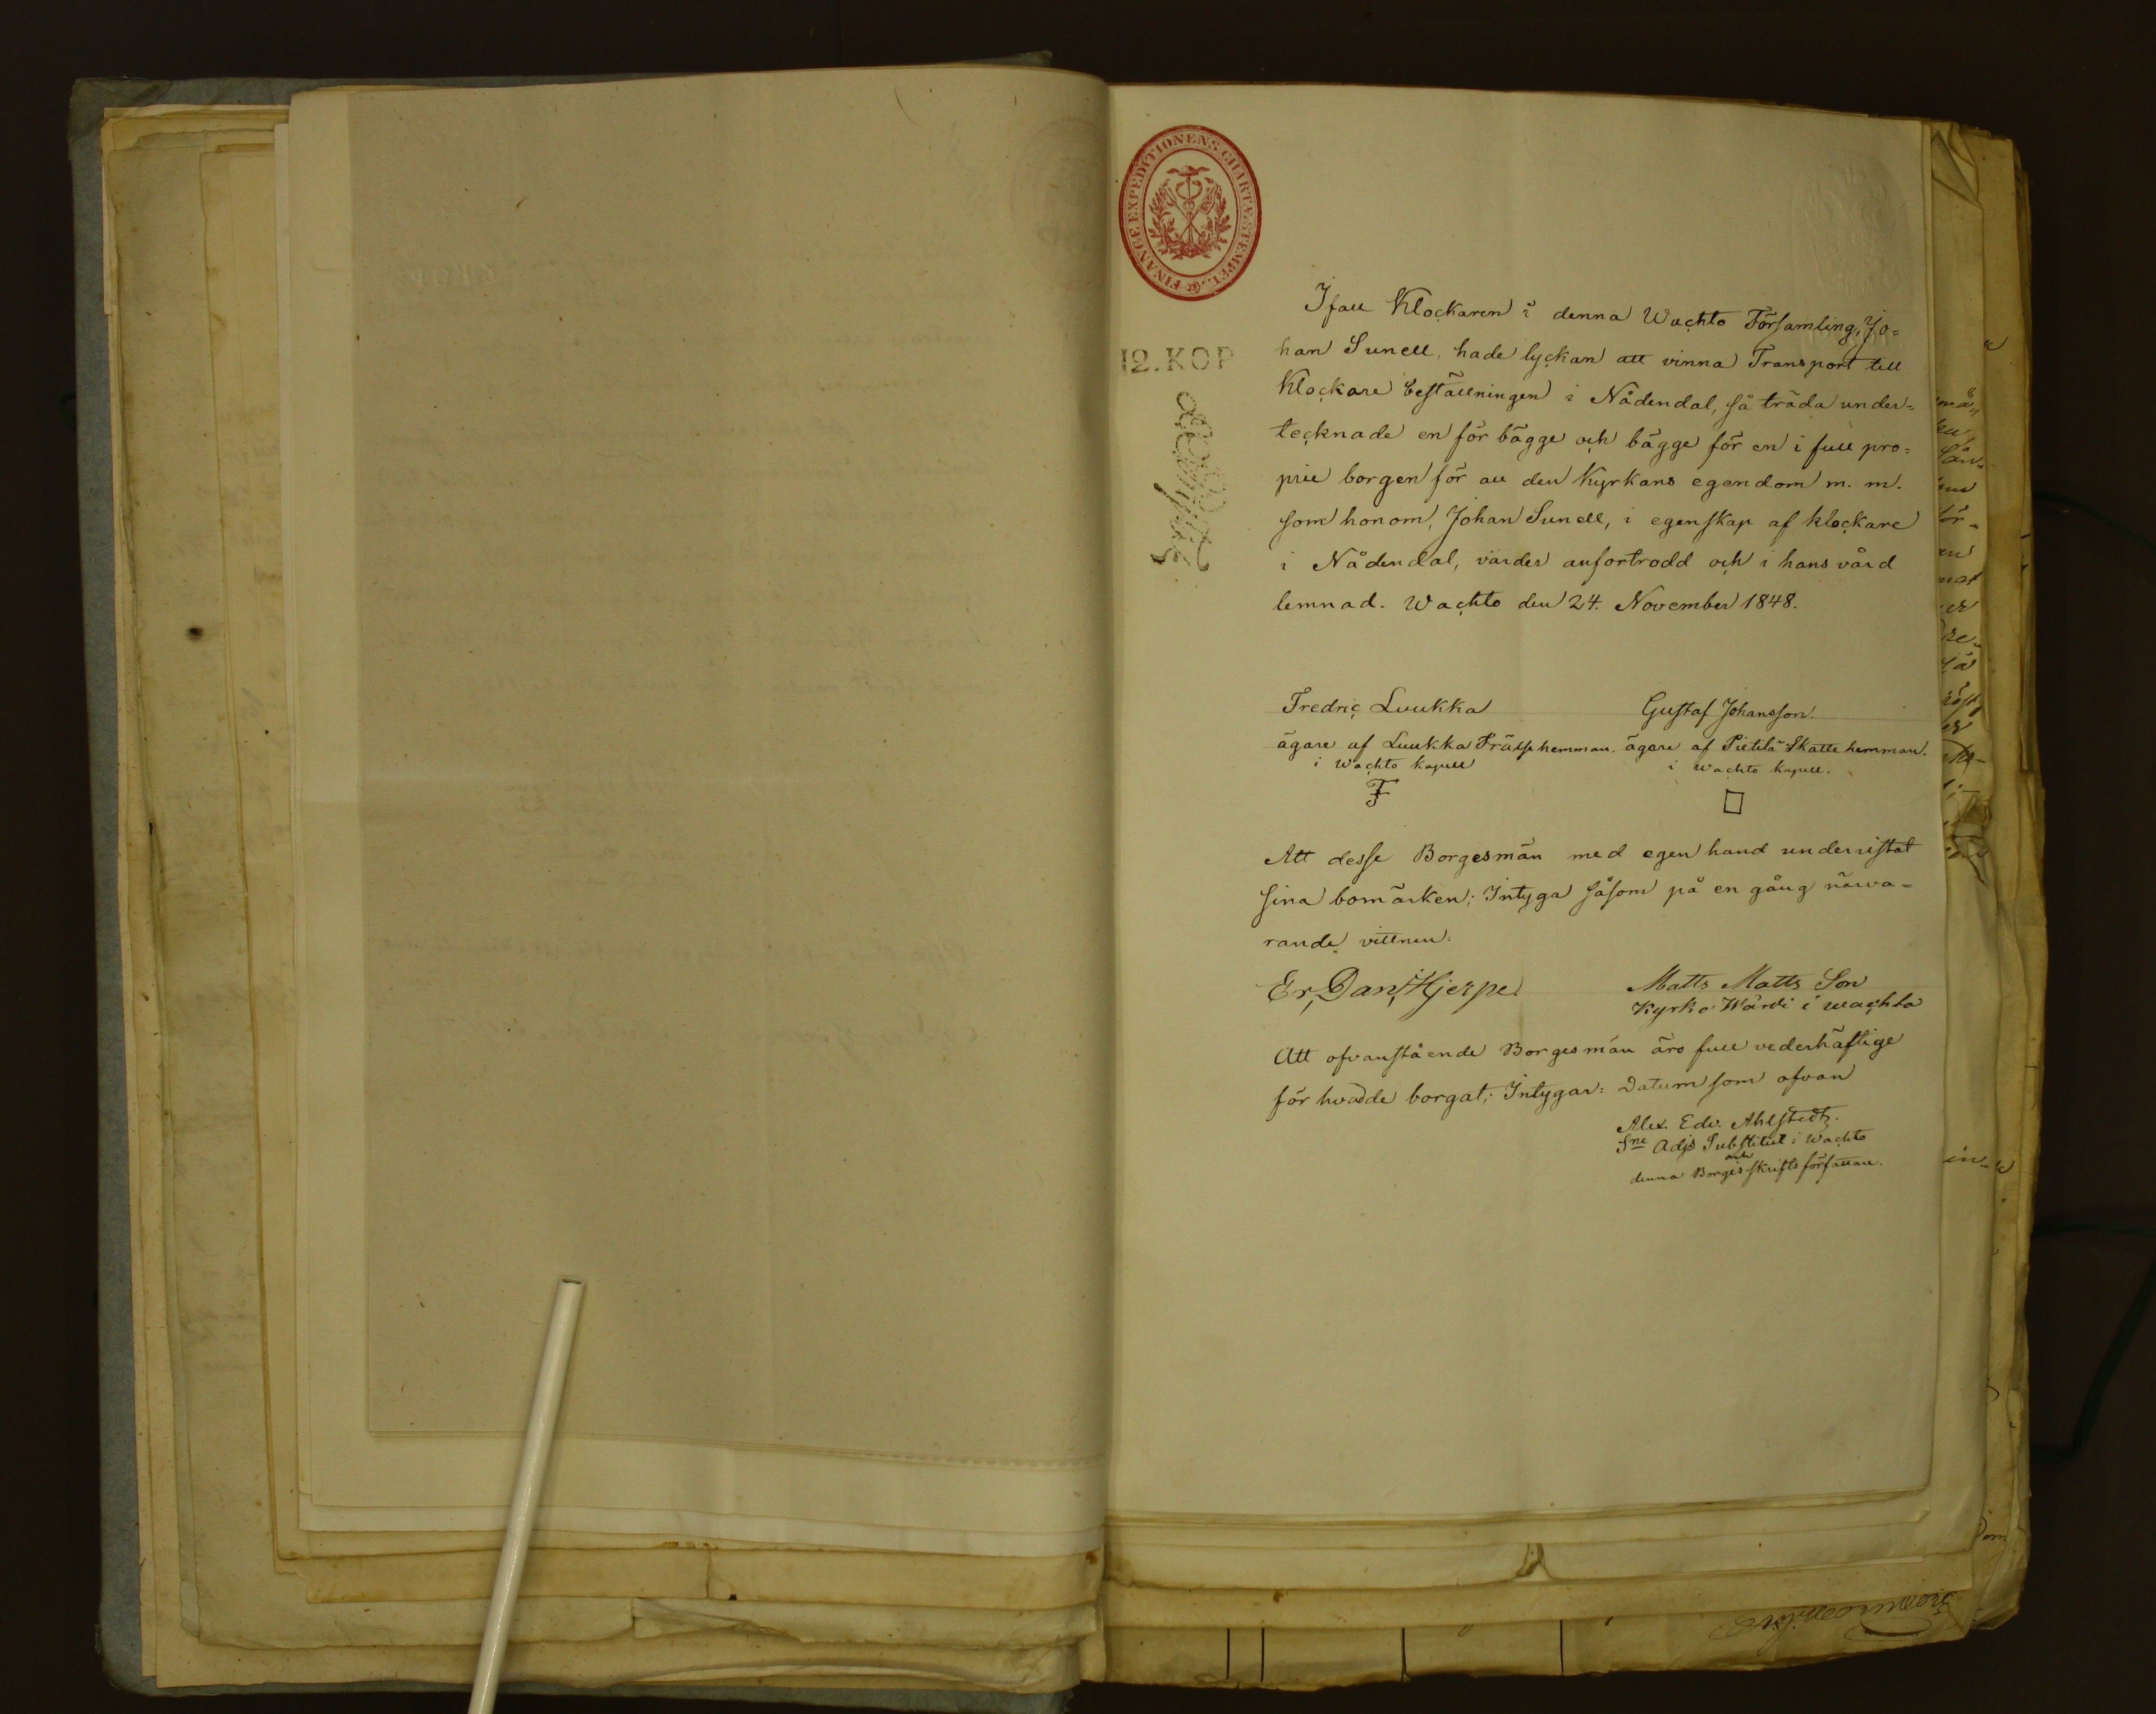 FINANCE EXPEDITIONENS CHARTÆ STEMPEL.
12. KOP
Ifall Klockaren i denna Wachto Församling, Jo=
han Sunell, hade lyckan att vinna Transport till
Klockare beställningen i Nådendal, så träda under=
tecknade en för bägge och bägge för en i full pro=
prie borgen för all den Kyrkans egendom m. m.
som honom, Johan Sunell, i egenskap af klockare
i Nådendal, varder anförtrodd och i hans vård
lemnad. Wachto den 24. November 1848.
Fredric Luukka
ägare af Luukka Frälse hemman.
i Wachto kapell
F
Gustaf Johansson.
ägare af Pietilä Skatte hemman.
i Wachto kapell.
Att desse Borgesmän med egen hand underristat
sina bomärken; Intyga såsom på en gång närva=
rande vittnen:
Er, Dan, Hjerpe
Matts Matts Son
Kyrko Wärdi i wachto
Att ofvanstående Borgesmän äro full vederhäftige
för hvad de borgat; Intygar: Datum som ofvan
Alex. Edv. Ahlstedt.
Sne Adjs Substitut i Wachto
och
denna Borges-skrifts författare.